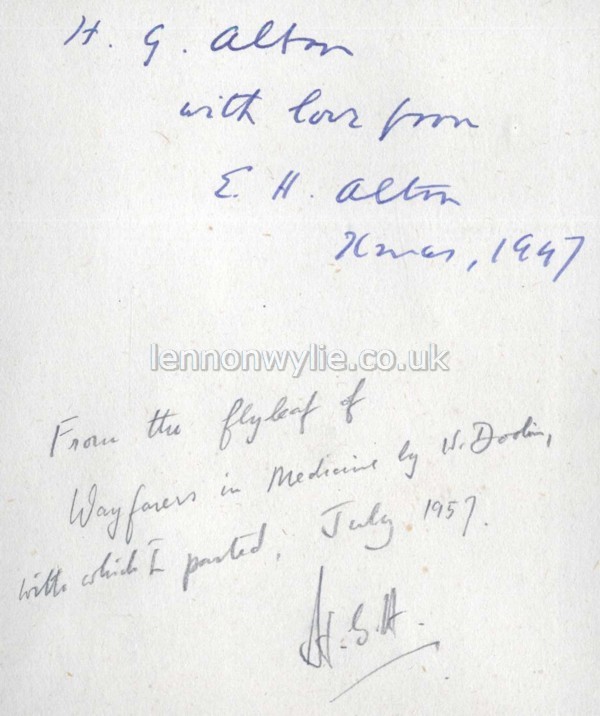 H. G. Alton
with love from
E. H. Alton
Xmas, 1947
lennonwylie.co.uk
From the flyleaf of
Wayfarers in Medicine by W. Doolin,
with which I parted, July 1957.
H.G.A.